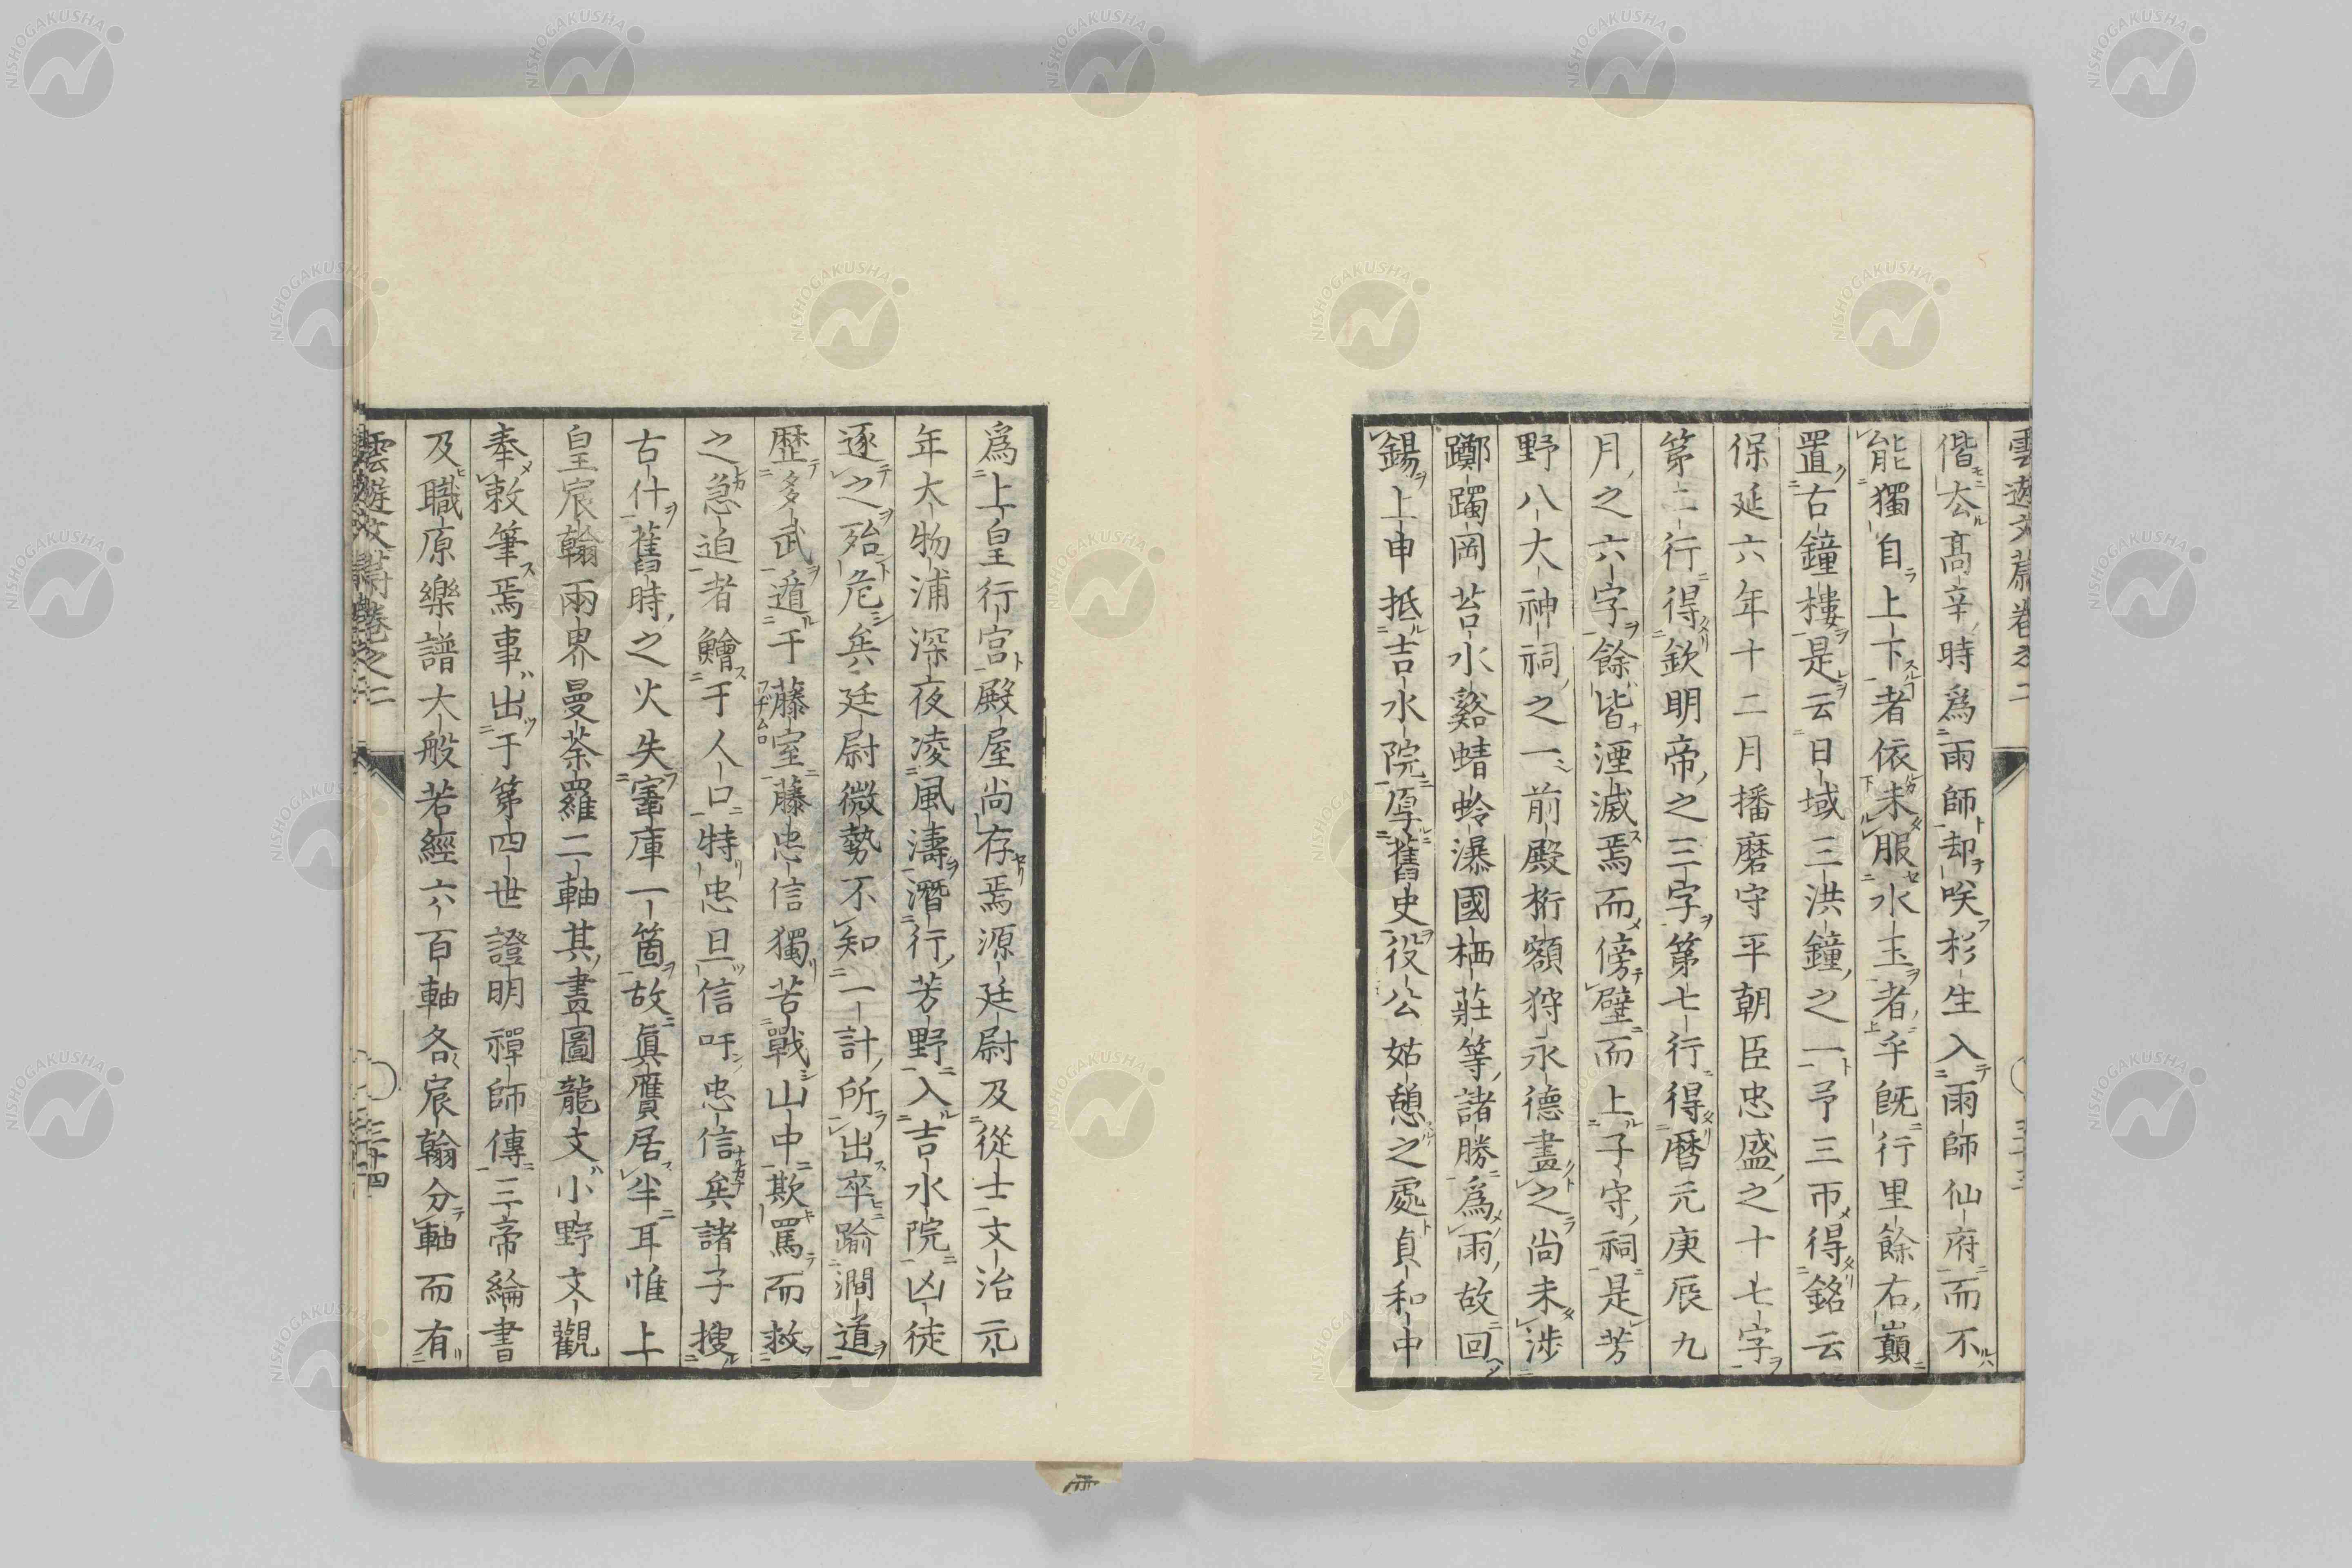 偕太高辛時爲雨師却咲杉生入雨師仙府而不
能獨自上下者依未服水玉者乎既行里餘右巓
置古鐘樓是云日域三洪鐘之一予三帀得銘云
保延六年十二月播磨守平朝臣忠盛之十七字
第二行得欽明帝之三字第七行得曆元庚辰九
月之六字餘皆湮滅焉而傍壁而上子守祠是芳
野八大神祠之一前殿桁額狩永德畫之尚未涉
躑躅岡苔水谿蜻蛉瀑國栖莊等諸勝爲雨故回
錫上申抵吉水院厚舊史役公姑憩之處貞和中
爲上皇行宮殿屋尚存焉源廷尉及從士文治元
年大物浦深夜凌風濤潛行芳野入吉水院凶徒
逐之殆危矣廷尉微勢不知一計所出卒踰澗道
歷多武遁于藤室藤忠信獨苦戰山中欺罵而救
フヂムロ
之急迫者鱠于人口特忠且信吁忠信矣諸子搜
古什舊時之火失寗庫一箇故眞贋居半耳惟上
皇宸翰兩界曼荼羅二軸其畫圖龍文小野文觀
奉敕筆焉事出于第四世證明禪師傳三帝綸書
及職原樂譜大般若經六百軸各宸翰分軸而有
三十四
NISHOGAKUSHA